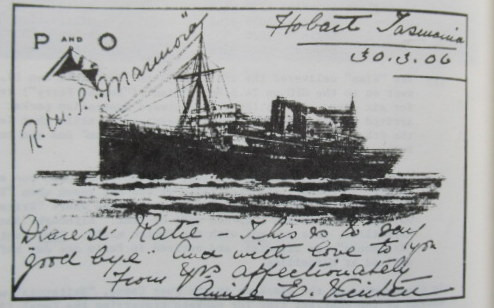 P AND O
R.M.S. "Marmora"
Hobart Tasmania
30.3.06
Dearest Katie - This is to say
"good bye" and with love to you
From yrs affectionately
Annie E.